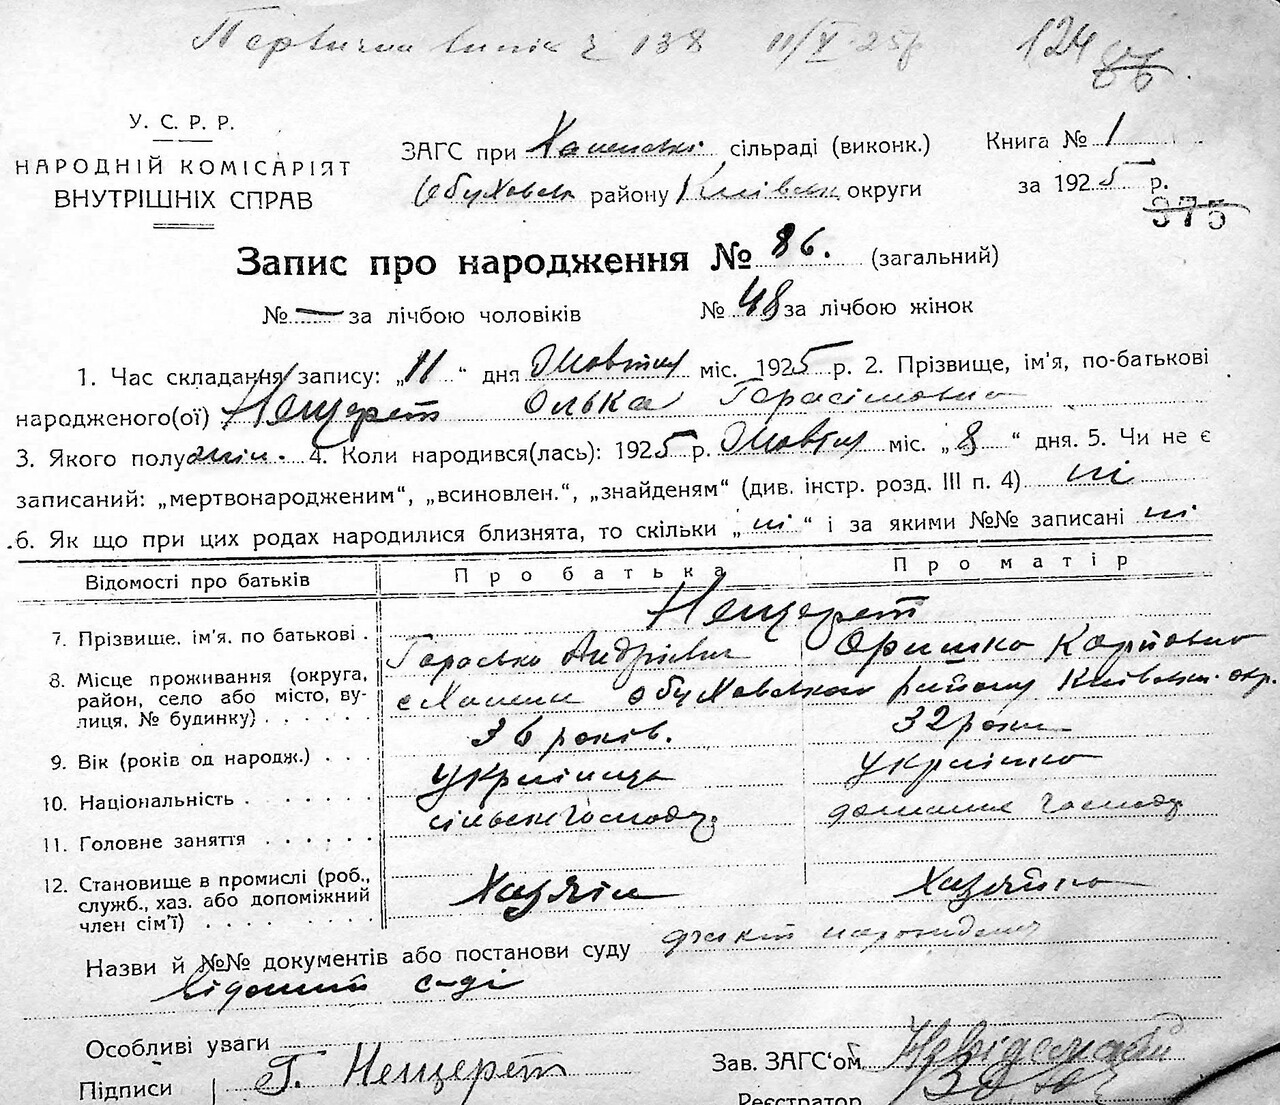 138 11/X 25р 124
У. С. Р. Р.
НАРОДНІЙ КОМІСАРІЯТ
ВНУТРІШНІХ СПРАВ
ЗАГС при сільраді (виконк.)
Обуховськ району Київськ округи
Книга № 1
за 1925 р.
375
Запис про народження № 86. (загальний)
№ — за лічбою чоловіків № 48 за лічбою жінок
1. Час складання запису: „11“ дня Жовтня міс. 1925 р. 2. Прізвище, ім'я, по-батькові
народженого(ої) Нещерет Олька Герасімовна
3. Якого полу жін. 4. Коли народився(лась): 1925 р. Жовтня міс. „8“ дня. 5. Чи не є
записаний: „мертвонародженим“, „всиновлен.“, „знайденям“ (див. інстр. розд. III п. 4) ні
6. Як що при цих родах народилися близнята, то скільки „ні“ і за якими №№ записані ні
Відомості про батьків Про батька Про матір
Нещерет
7. Прізвище, ім'я, по батькові . Гарасько Андрієвич Оришка Карповна
8. Місце проживання (округа,
район, село або місто, ву-
лиця, № будинку) . . . . . . Обуховського району Київськ. окр.
9. Вік (років од народж.) . . . 36 років. 32 роки
10. Національність . . . . . . . Українець Українка
11. Головне заняття . . . . . . сільське господ. домашнє господ.
12. Становище в промислі (роб.,
служб., хаз. або допоміжний
член сім'ї) . . . . . Хазяін Хазяйка
Назви й №№ документів або постанови суду факт народження
відомий
Особливі уваги
Підписи Г. Нещерет
Зав. ЗАГС'ом
Реєстратор